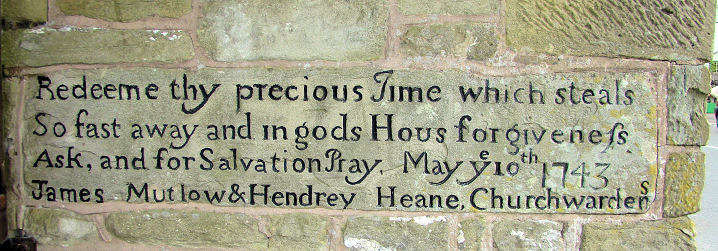 Redeeme thy precious Time which steals
So fast away and in gods Hous forgiveneſs
Ask, and for Salvation Pray. May yᵉ 10ᵗʰ 1743
James Mutlow & Hendrey Heane, Churchwardenˢ